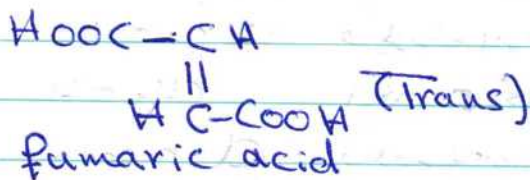 HOOC-CH
||
H C-COOH (Trans)
fumaric acid